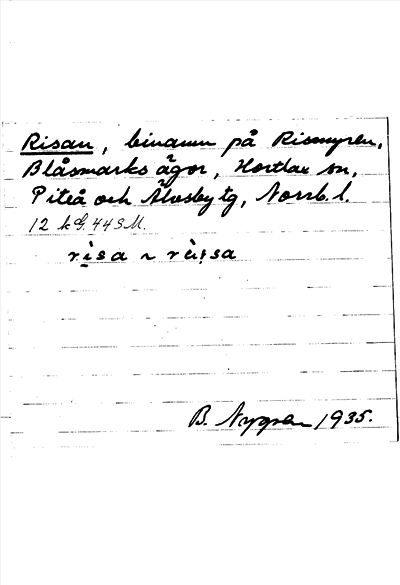 Risan, binamn på Rismyren,
Blåsmarks ägor, Hortlax sn,
Piteå och Älvsby tg, Norrb. l.
12 k G. 44 SM.
rịsa ~ rùịsa
B. Nygren 1935.